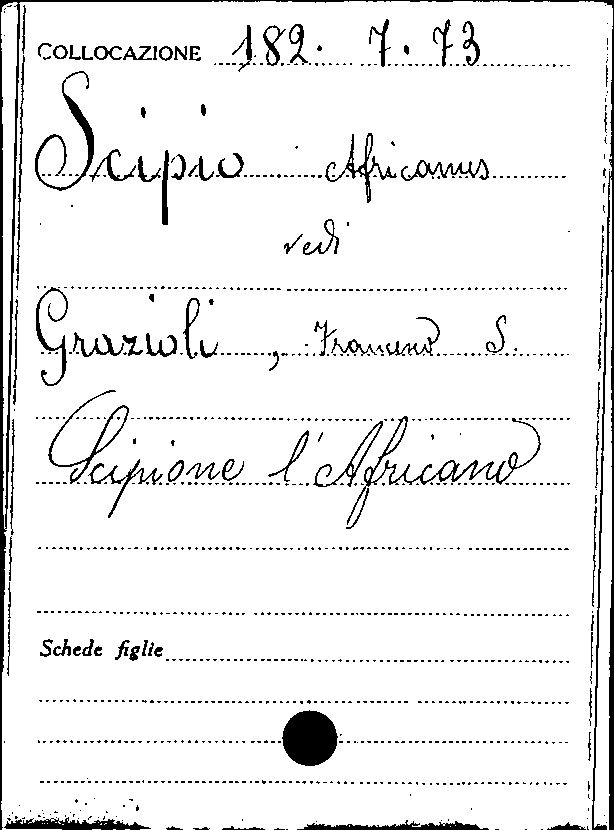 COLLOCAZIONE 182. 7. 73
Scipio Africanus
vedi
Grazioli, Francesco S.
Scipione l'Africano
Schede figlie